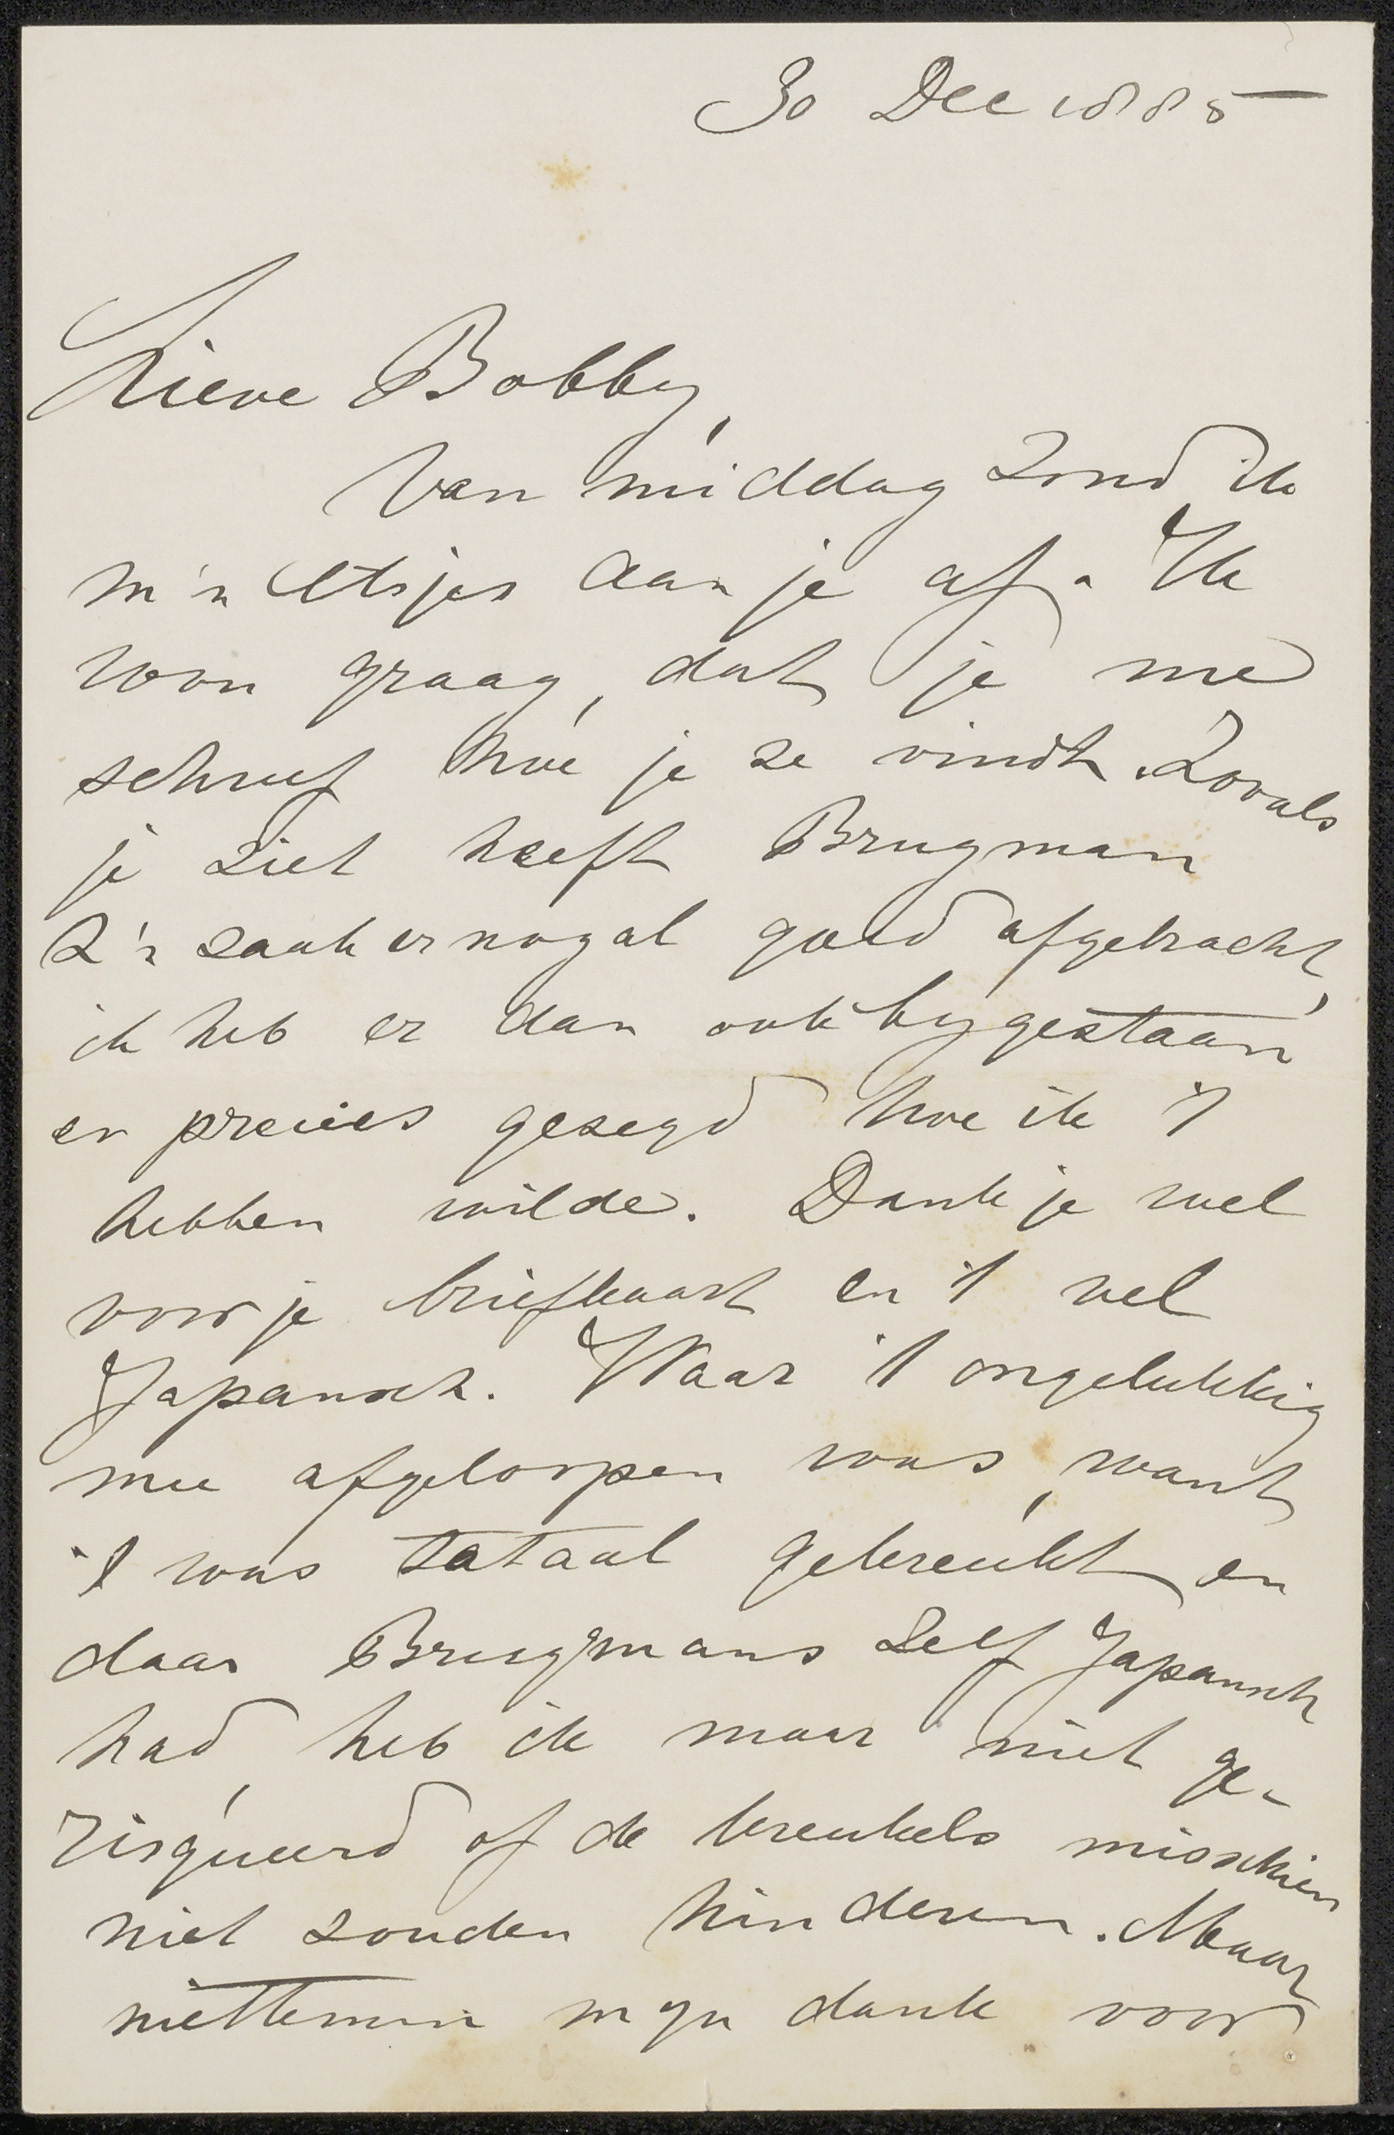 30 Dec 1885
Lieve Bobby,
Van middag zond ik
m'n etsjes aan je af. Ik
won graag, dat je me
schreef hoe je ze vindt. Zooals
je ziet heeft Brugman
z'n zaak er nogal goed afgebracht,
ik heb er dan ook bygestaan
en precies gezegd hoe ik 't
hebben wilde. Dank je wel
voor je briefkaart en 't vel
Japansch. Waar 't ongelukkig
mee afgeloopen was, want
't was totaal gekreukt en
daar Brugmans zelf Japansch
had, heb ik maar niet ge-
risqueerd of de kreukels misschien
niet zouden hinderen. Maar
niettemin myn dank voor